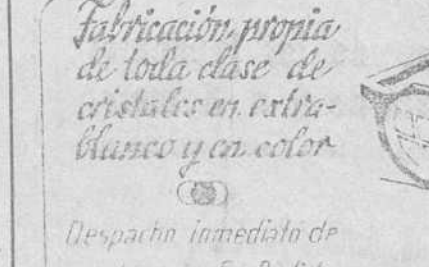 Fabricación propia
de toda clase de
cristales en extra-
blanco y en color
Despacho inmediato de